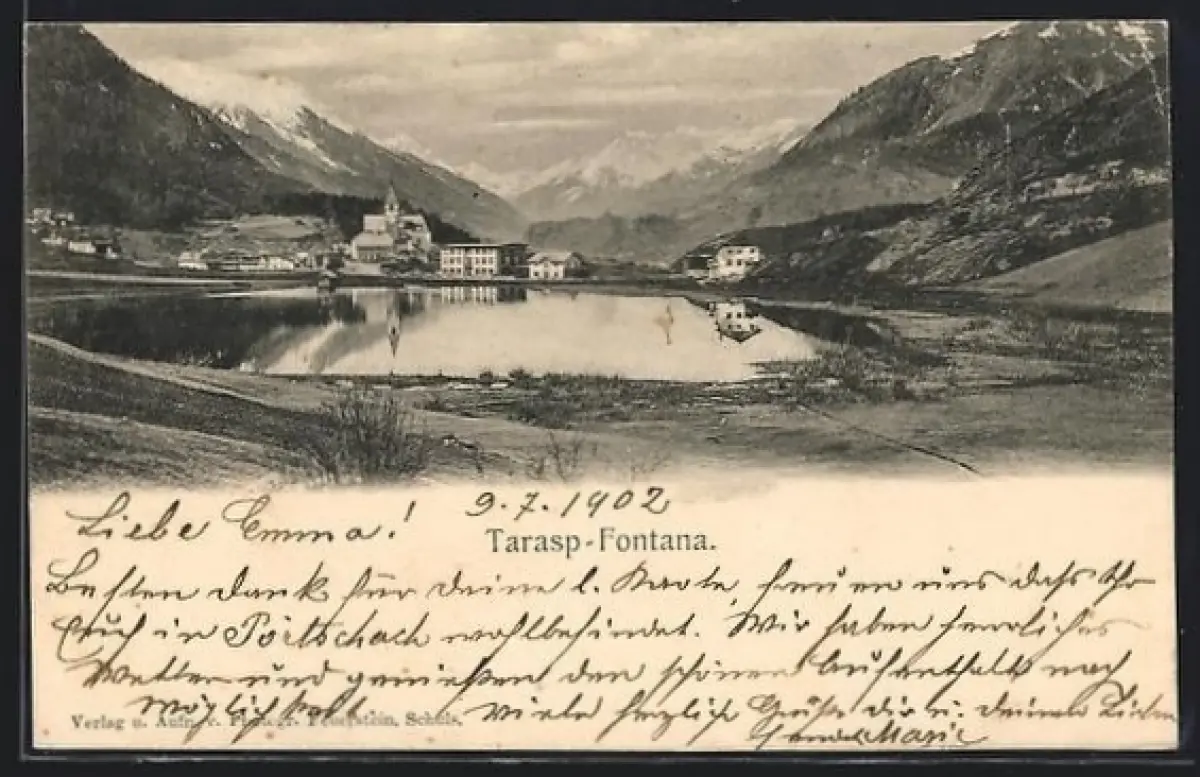 Liebe Emma! 9.7.1902
Tarasp-Fontana.
Besten Dank für deine l. Karte, freuen uns daß Ihr
Euch in Pörtschach wohlbefindet. Wir haben herrliches
Wetter und genießen den schönen Aufenthalt nach
Möglichkeit. Viele herzlich Grüße dir u. deinen Lieben
Marie
Verlag u. Aufn. v. Feuerstein, Schuls.